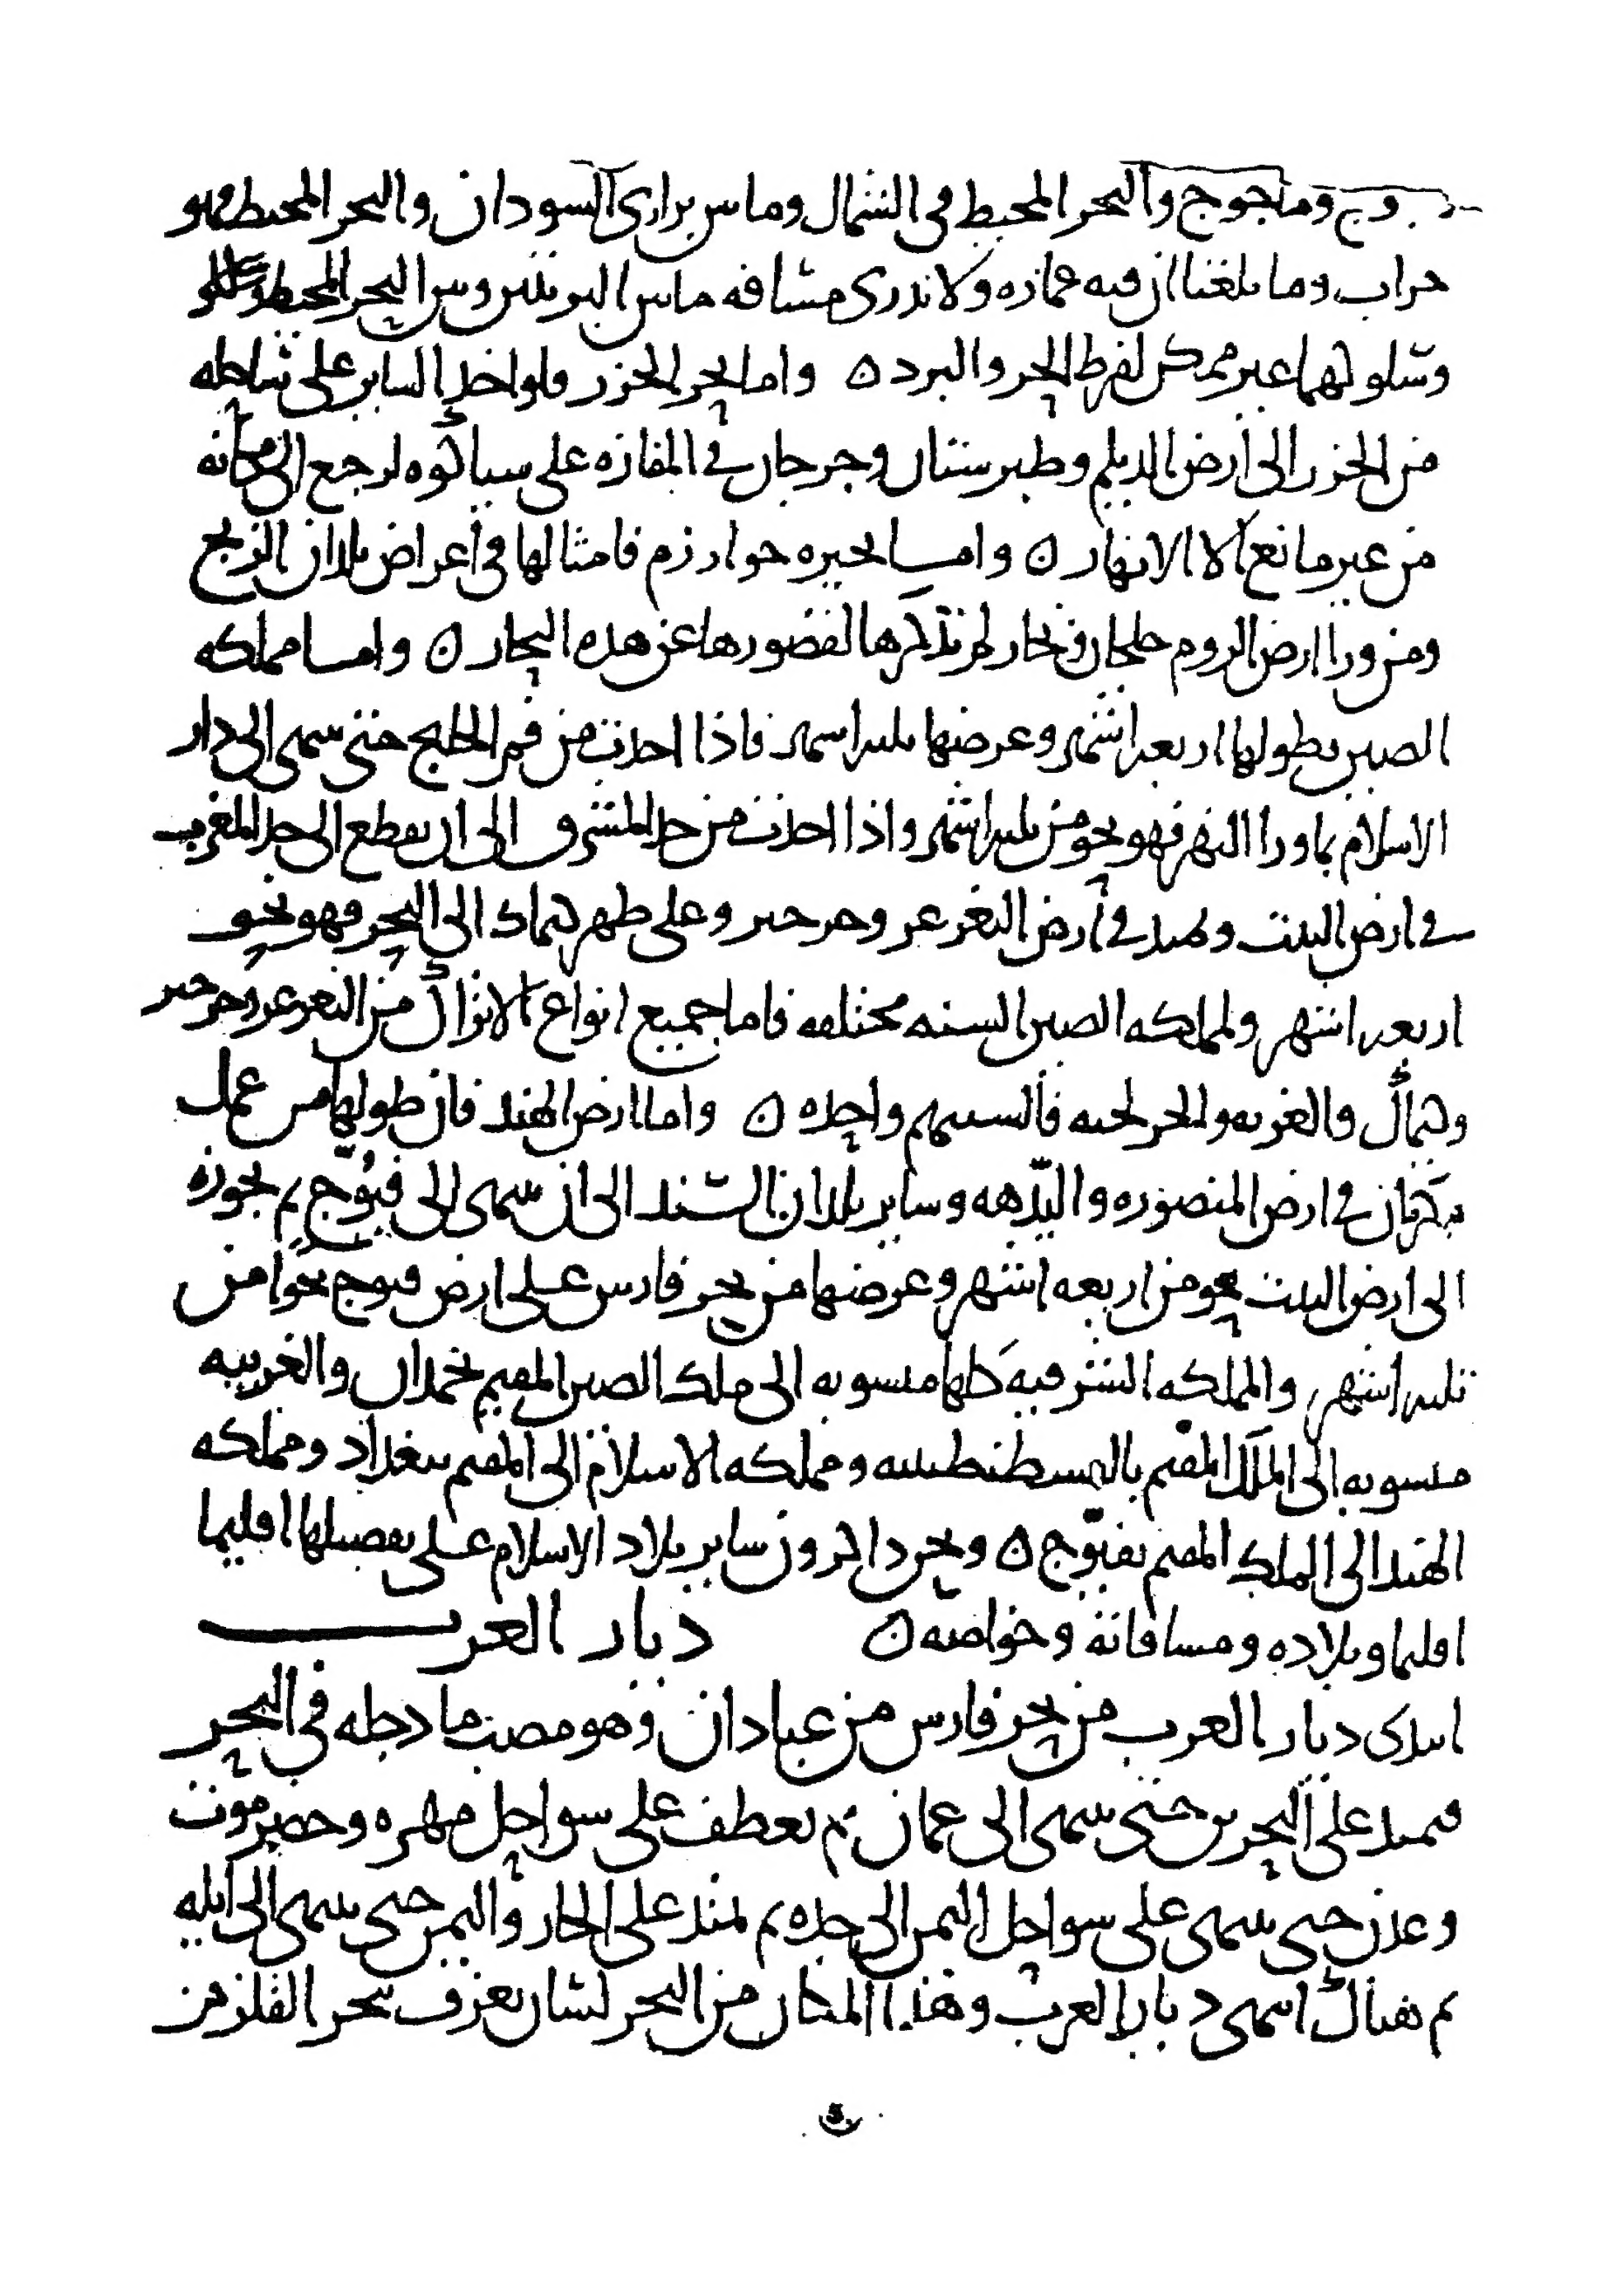 وج وماجوج والبحر المحيط فى الشمال وماىىن برارى السودان والبحر المحيط فهو
خراب وما بلغنا ان فيه عمارة ولا ندرى مسافه مابين البريتين وبين البحر المحيط
وسلولهما غير ممكن لفرط الحر والبرد ن واما بحر الخزر فلو اخذ الساير على شاطه
من الخزر الى ارض الديلم وطبرستان وجرجان في المفازه على سياكوه لرجع الى مكانه
من غير مانع الا الانهار ن واما بحيره خوارزم فامثالها في اعراض بلدان الزنج
ومن ورا ارض الروم خلجان وبحار لم نذكرها لقصورها عن هذه البحار ن واما مملكه
الصين فطولها اربعه اشهر وعرضها ثلثه اشهر فاذا اخذت من فم الخليج حتى تنتهى الى دار
الاسلام بماورا النهر فهو نحو من ثلثه اشهر واذا اخذت من حد المشرق الى ان تقطع الى حد المغرب
في ارض التبت وتمتد في ارض التغزغز وخرخيز وعلى ظهر كيماك الى البحر فهو نحو
اربعه اشهر ولمملكه الصين السنه مختلفه فاما جميع انواع الاتراك من التغزغز وخرخيز
وكيماك والغزيه والخرلخيه فالسنتهم واحده ن واما ارض الهند فان طولها من عمل
مكران في ارض المنصوره والبدهه وساير بلدان السند الى ان تنتهى الى قنوج ثم تجوزه
الى ارض التبت نحو من اربعه اشهر وعرضها من بحر فارس على ارض قنوج نحوا من
ثلثه اشهر والمملكه الشرقيه كلها منسوبه الى ملك الصين المقيم بخمدان والغربيه
منسوبه الى الملك المقيم بالقسطنطينيه ومملكه الاسلام الى المقيم ببغداد ومملكه
الهند الى الملك المقيم بقنوج ن ونحن ذاكرون ساير بلاد الاسلام على تفصيلها اقليما
اقليما وبلاده ومسافاته وخواصه ن ديار العرب
ابتدى ديار العرب من بحر فارس من عبادان وهو مصب ما دجله في البحر
فتمتد على البحرين حتى تنتهى الى عمان ثم تعطف على سواحل مهره وحضرموت
وعدن حتى تنتهى على سواحل اليمن الى جده ثم تمتد على الجار واليمن حتى تنتهى الى ايله
ثم هناك انتهى ديار العرب وهذا المكان من البحر لسان يعرف ببحر القلزم من